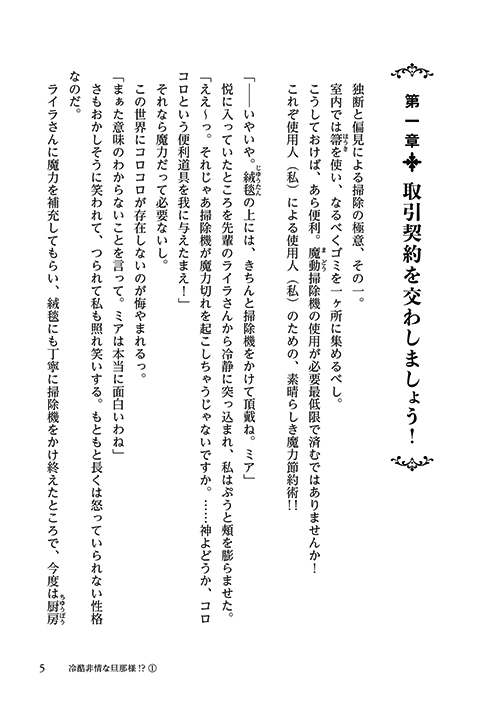 第一章 取引契約を交わしましょう！
独断と偏見による掃除の極意、その一。
室内では箒を使い、なるべくゴミを一ヶ所に集めるべし。
こうしておけば、あら便利。魔動掃除機の使用が必要最低限で済むではありませんか！
これぞ使用人（私）による使用人（私）のための、素晴らしき魔力節約術!!
「――いやいや。絨毯の上には、きちんと掃除機をかけて頂戴ね。ミア」
悦に入っていたところを先輩のライラさんから冷静に突っ込まれ、私はぷうと頬を膨らませた。
「ええ～っ。それじゃあ掃除機が魔力切れを起こしちゃうじゃないですか。……神よどうか、コロ
コロという便利道具を我に与えたまえ！」
それなら魔力だって必要ないし。
この世界にコロコロが存在しないのが悔やまれるっ。
「まぁた意味のわからないことを言って。ミアは本当に面白いわね」
さもおかしそうに笑われて、つられて私も照れ笑いする。もともと長くは怒っていられない性格
なのだ。
ライラさんに魔力を補充してもらい、絨毯にも丁寧に掃除機をかけ終えたところで、今度は厨房
5 冷酷非情な旦那様!? ①